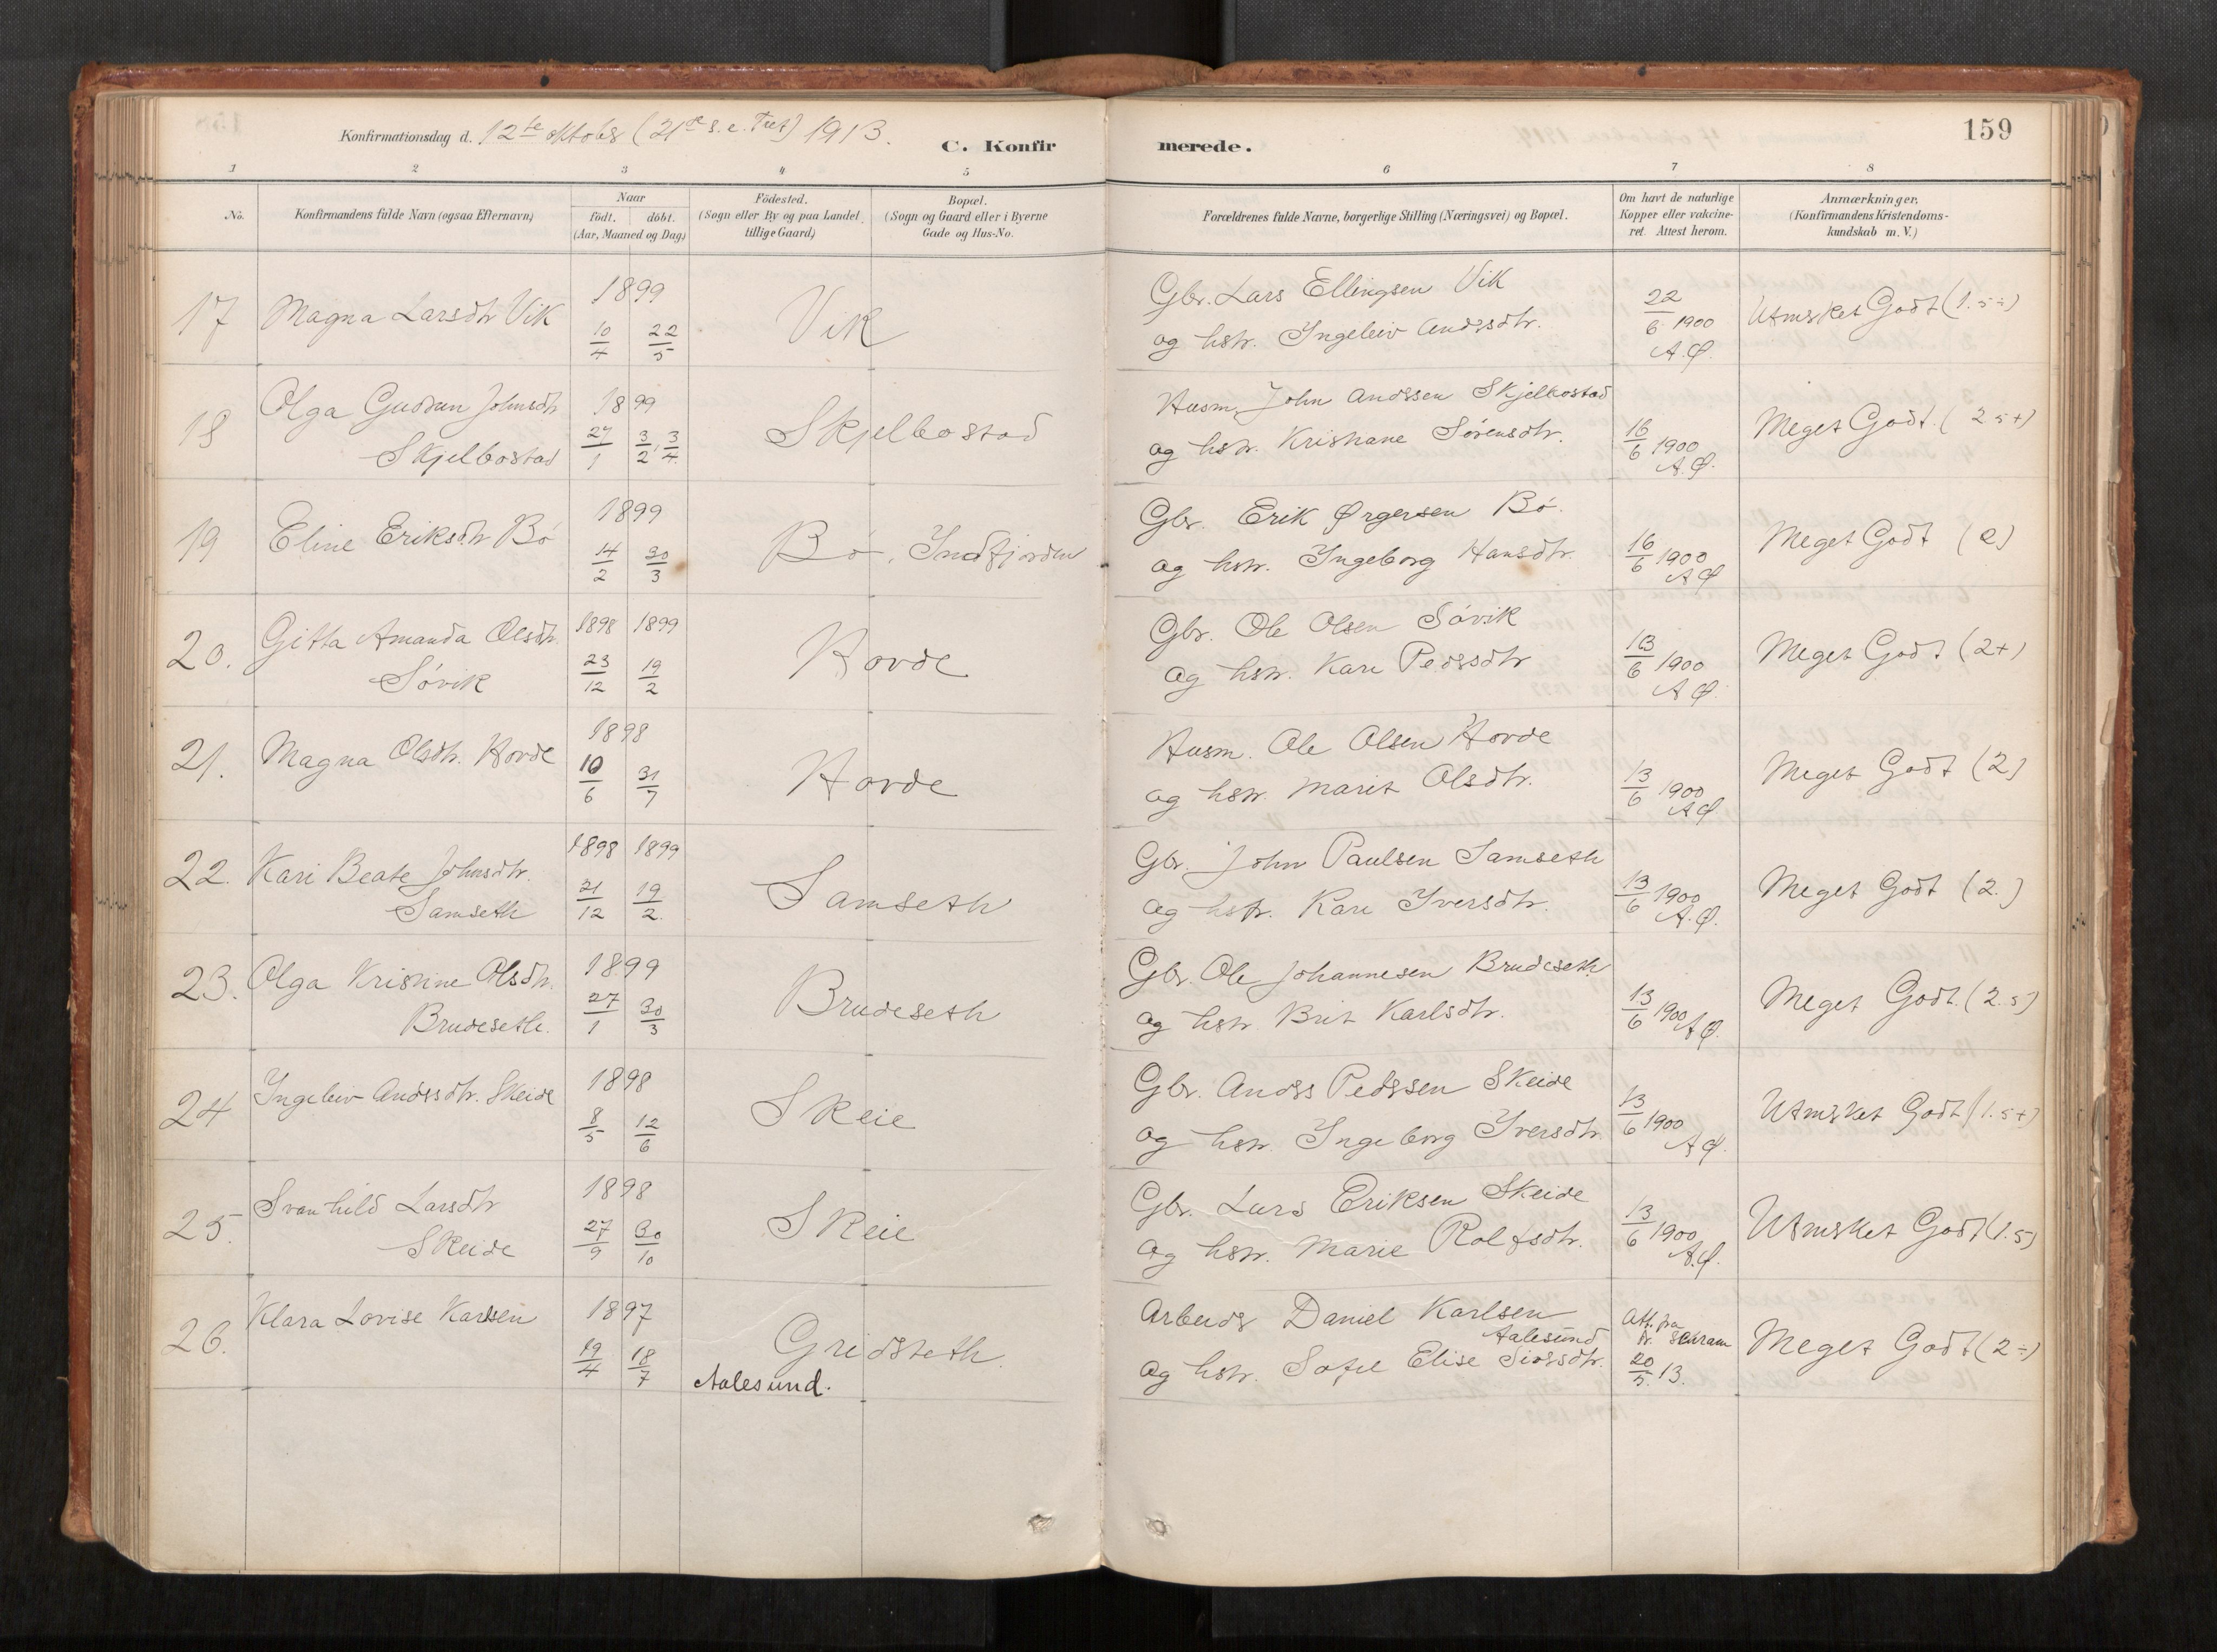 Konfirmationsdag d. 12te oktober (21de s. e. Tref) 1913.
C. Konfirmerede.
159
1 2 3 4 5 6 7 8
No.
Konfirmandens fulde Navn (ogsaa Efternavn)
Naar
födt. döbt.
(Aar, Maaned og Dag)
Födested.
(Sogn eller By og paa Landet
tillige Gaard)
Bopæl.
(Sogn og Gaard eller i Byerne
Gade og Hus-No.
Forældrenes fulde Navne, borgerlige Stilling (Næringsvei) og Bopæl.
Om havt de naturlige
Kopper eller vakcine-
ret. Attest herom.
Anmærkninger.
(Konfirmandens Kristendoms-
kundskab m. V.)
17 Magna Larsdtr Vik 1899 10/4 22/5 Vik
Gbr. Lars Ellingsen Vik
og hstr. Ingeleiv Andersdtr.
22/6 1900 A.Ø.
Utmerket Godt (1.5÷)
18 Olga Gudrun Johnsdtr
Skjelbostad 1899 27/1 3/2, 3/4 Skjelbostad
Husm. John Anderssen Skjelbostad
og hstr. Kristiane Sörensdtr.
16/6 1900 A.Ø.
Meget Godt. (2.5+)
19 Eline Eriksdtr Bö 1899 14/2 30/3 Bö, Indfjorden
Gbr. Erik Ørgersen Bö.
og hstr. Ingeborg Hansdtr.
16/6 1900 A Ø
Meget Godt (2)
20. Gitta Amanda Olsdtr.
Sövik 1898 23/12 1899 19/2 Hovde
Gbr. Ole Olsen Sövik
og hstr. Kari Pedersdtr
13/6 1900 A Ø.
Meget Godt (2+)
21. Magna Olsdtr. Hovde 1898 10/6 31/7 Hovde
Husm. Ole Olsen Hovde
og hstr. Marit Olsdtr.
13/6 1900 A Ø
Meget Godt (2)
22. Kari Beate Johnsdtr.
Samseth 1898 21/12 1899 19/2. Samseth
Gbr. John Paulsen Samseth
og hstr. Kari Iversdtr.
13/6 1900 A.Ø.
Meget Godt (2.)
23. Olga Kristine Olsdtr.
Brudeseth. 1899 27/1 30/3 Brudeseth
Gbr. Ole Johannesen Brudeseth
og hstr. Brit Karlsdtr.
13/6 1900 A Ø.
Meget Godt. (2.5)
24 Ingeleiv Andersdtr. Skeide 1898 8/5 12/6 Skeie
Gbr. Anders Pedersen Skeide
og hstr. Ingeborg Iversdtr.
13/6 1900 A Ø.
Utmerket Godt (1.5+)
25. Svanhild Larsdtr
Skeide 1898 27/9 30/10 Skeie
Gbr. Lars Eriksen Skeide
og hstr. Marie Rolfsdtr.
13/6 1900 A.Ø.
Utmerket Godt (1.5)
26. Klara Lovise Karlsen 1897 19/4 18/7 Gridseth.
Aalesund.
Arbeider Daniel Karlsen
Aalesund
og hstr. Sofie Elise
Att. fra
dr. Schram
20/5. 13.
Meget Godt (2÷)